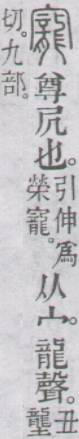 寵尊凥也。引伸爲榮寵。从宀。龍聲。丑壟
切。九部。